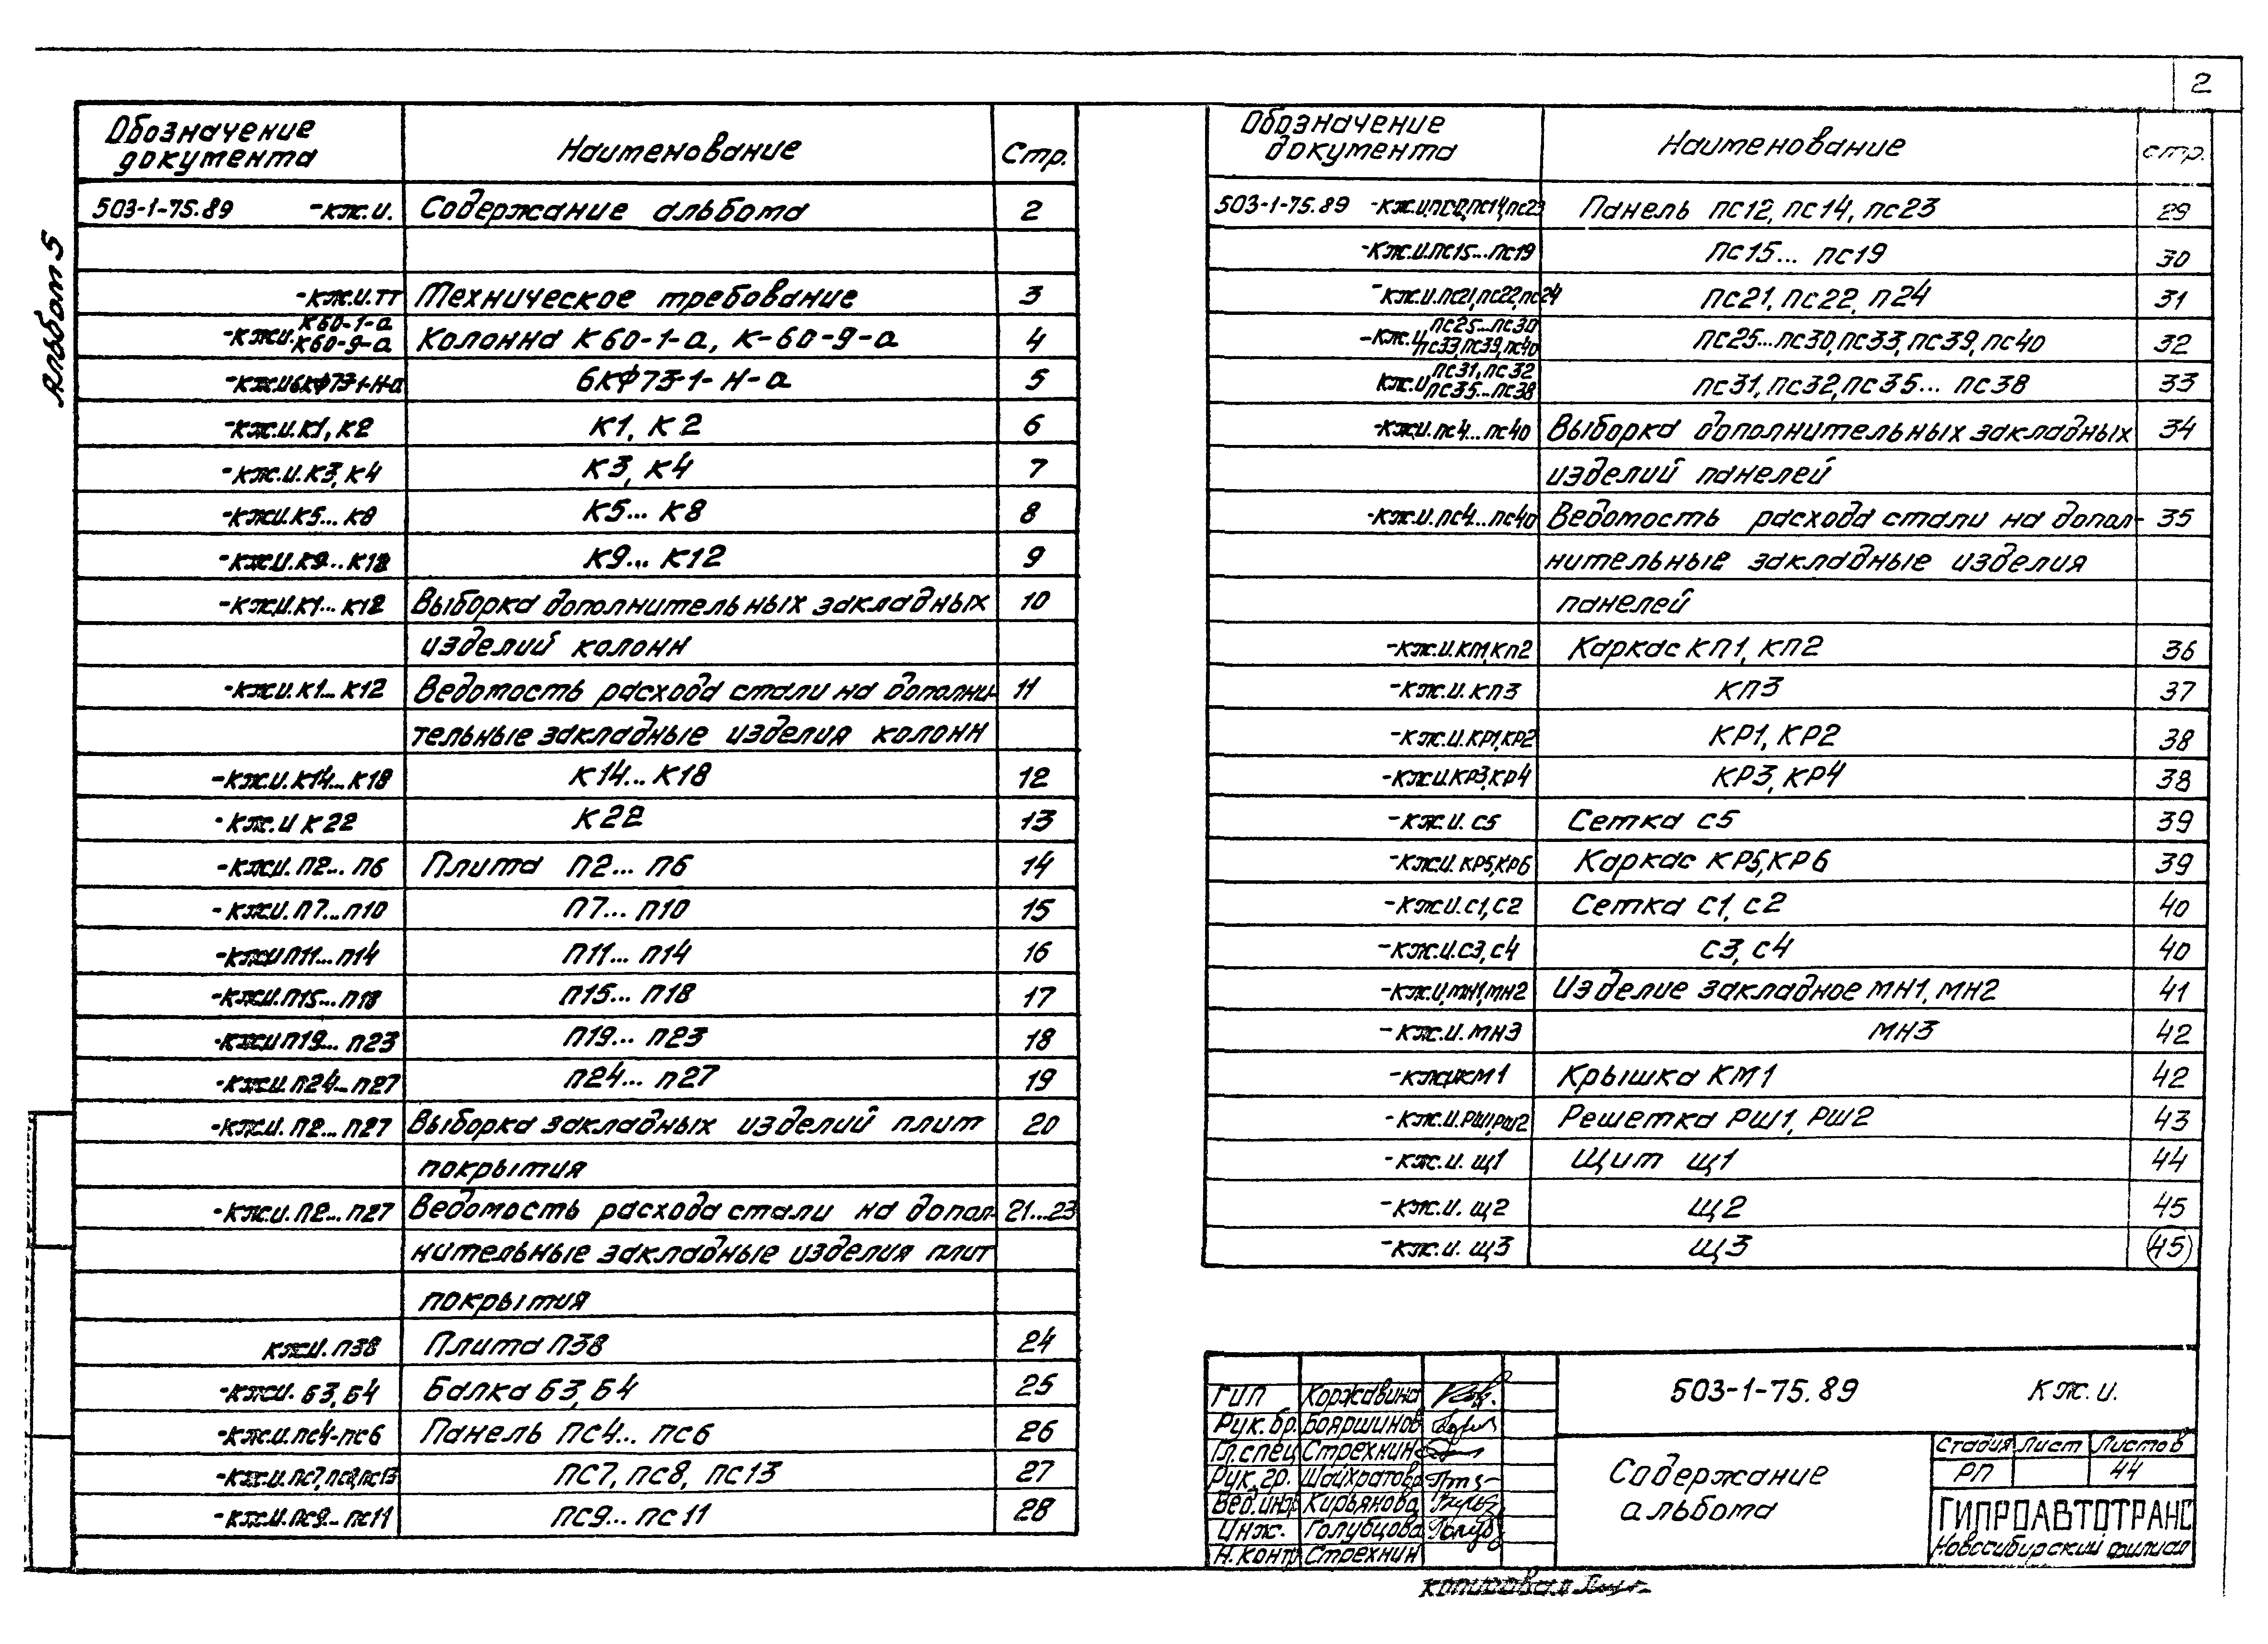 2
Альбом 5
Обозначение документа Наименование Стр.
503-1-75.89 -кж.и. Содержание альбома 2
-кж.и.тт Техническое требование 3
-кж.и. К60-1-а К60-9-а Колонна К60-1-а, К-60-9-а 4
-кж.и 6КФ73-1-Н-а 6КФ73-1-Н-а 5
-кж.и.К1, К2 К1, К2 6
-кж.и.К3, К4 К3, К4 7
-кж.и.К5... К8 К5... К8 8
-кж.и.К9...К12 К9... К12 9
-кж.и.К1... К12 Выборка дополнительных закладных 10
изделий колонн
-кж.и.К1... К12 Ведомость расхода стали на дополни- 11
тельные закладные изделия колонн
-кж.и.К14...К18 К14... К18 12
-кж.и К22 К22 13
-кж.и. П2... П6 Плита П2... П6 14
-кж.и. П7...П10 П7... П10 15
-кж.и П11...П14 П11... П14 16
-кж.и.П15...П18 П15... П18 17
-кж.и П19... П23 П19... П23 18
-кж.и.П24...П27 П24... П27 19
-кж.и. П2... П27 Выборка закладных изделий плит 20
покрытия
-кж.и. П2... П27 Ведомость расхода стали на допол- 21...23
нительные закладные изделия плит
покрытия
кж.и. П38 Плита П38 24
-кж.и. Б3, Б4 Балка Б3, Б4 25
-кж.и.пс4-пс6 Панель пс4... пс6 26
-кж.и.пс7, пс8, пс13 пс7, пс8, пс13 27
-кж.и.пс9... пс11 пс9... пс11 28
Обозначение документа Наименование стр.
503-1-75.89 -кж.и.пс12, пс14, пс23 Панель пс12, пс14, пс23 29
-кж.и.пс15...пс19 пс15... пс19 30
-кж.и.пс21, пс22, пс24 пс21, пс22, п24 31
-кж.и. пс25...пс30 пс33, пс39, пс40 пс25...пс30, пс33, пс39, пс40 32
кж.и. пс31, пс32 пс35...пс38 пс31, пс32, пс35... пс38 33
-кж.и. пс4... пс40 Выборка дополнительных закладных 34
изделий панелей
-кж.и. пс4... пс40 Ведомость расхода стали на допол- 35
нительные закладные изделия
панелей
-кж.и.кп1, кп2 Каркас КП1, КП2 36
-кж.и. кп3 КП3 37
-кж.и.КР1, КР2 КР1, КР2 38
-кж.и.КР3, КР4 КР3, КР4 38
-кж.и. с5 Сетка с5 39
-кж.и. КР5, КР6 Каркас КР5, КР6 39
-кж.и.с1, с2 Сетка с1, с2 40
-кж.и.с3, с4 с3, с4 40
-кж.и.мн1, мн2 Изделие закладное мн1, мн2 41
-кж.и.мн3 мн3 42
-кж.и.км1 Крышка КМ1 42
-кж.и.РШ1, РШ2 Решетка РШ1, РШ2 43
-кж.и. щ1 Щит щ1 44
-кж.и. щ2 щ2 45
-кж.и. щ3 щ3 45
ГИП Коржавина
Рук. бр. Бояршинов
Гл.спец Стрехнин
Рук. гр. Шайхратова
Вед.инж Кирьянова
Инж. Голубцова
Н.контр Стрехнин
503-1-75.89 КЖ.И.
Содержание
альбома
Стадия Лист Листов
РП 44
ГИПРОАВТОТРАНС
Новосибирский филиал
копировал